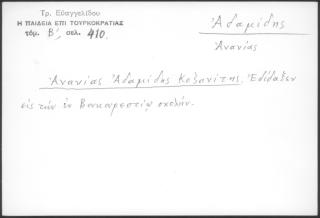 Τρ. Εὐαγγελίδου
Η ΠΑΙΔΕΙΑ ΕΠΙ ΤΟΥΡΚΟΚΡΑΤΙΑΣ
τόμ. Β', σελ. 410.
Ἀδαμίδης
Ἀνανίας
Ἀνανίας Ἀδαμίδης Κοζανίτης. Ἐδίδαξεν
εἰς τὴν ἐν Βουκουρεστίῳ σχολήν.